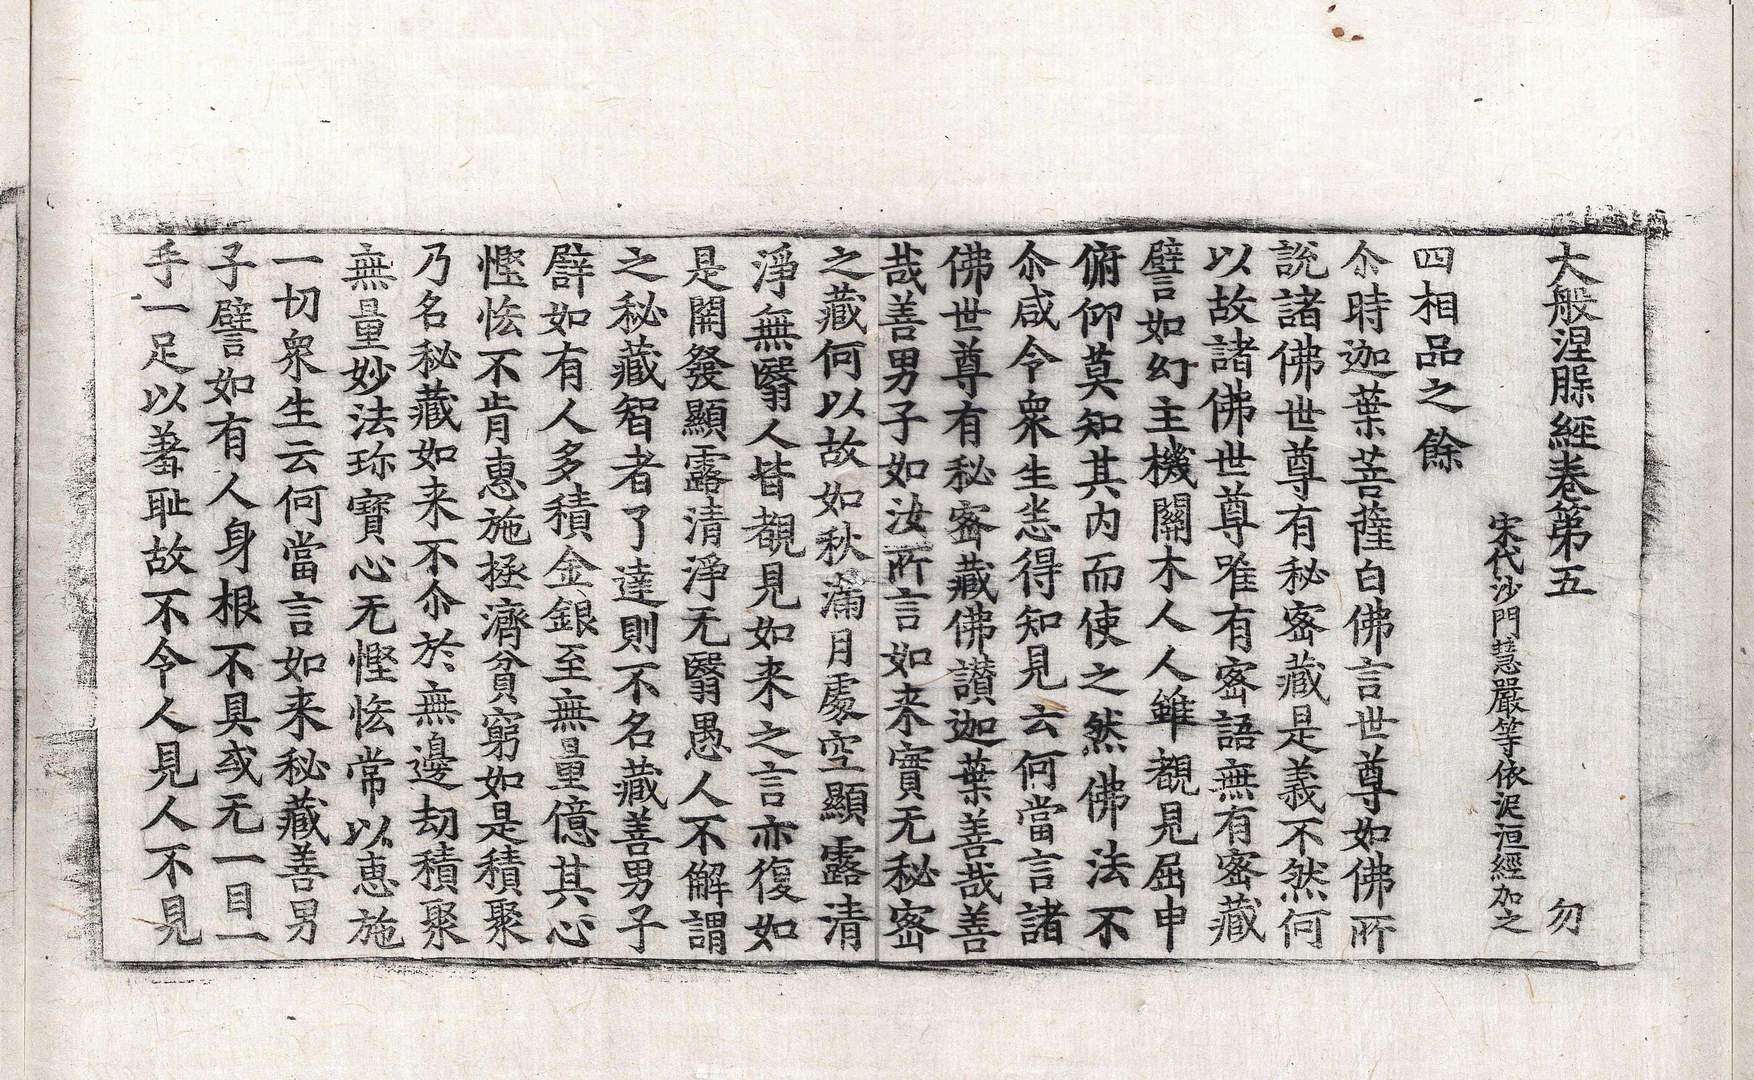 大般涅槃經卷第五　勿
宋代沙門慧嚴等依泥洹經加之
四相品之餘
尒時迦葉菩薩白佛言世尊如佛所
說諸佛世尊有秘密藏是義不然何
以故諸佛世尊唯有密語無有密藏
譬如幻主機關木人人雖覩見屈申
俯仰莫知其內而使之然佛法不
尒咸令衆生悉得知見云何當言諸
佛世尊有秘密藏佛讃迦葉善哉善
哉善男子如汝所言如来實无秘密
之藏何以故如秋滿月處空顯露清
淨無翳人皆覩見如来之言亦復如
是開發顯露清淨无翳愚人不解謂
之秘藏智者了達則不名藏善男子
譬如有人多積金銀至無量億其心
慳悋不肯惠施拯濟貧窮如是積聚
乃名秘藏如来不尒於無邊劫積聚
無量妙法珎寶心无慳悋常以惠施
一切衆生云何當言如来秘藏善男
子譬如有人身根不具或无一目一
手一足以羞耻故不令人見人不見